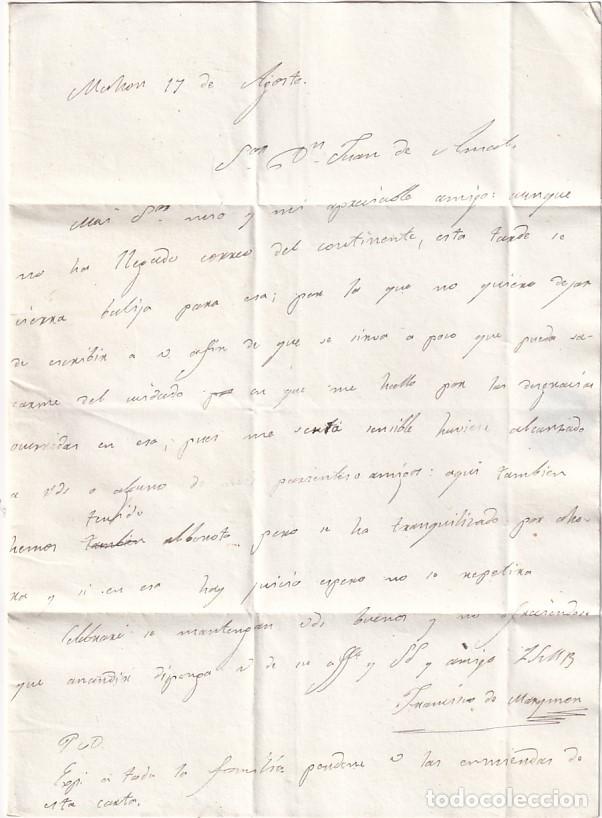 Mahon 17 de Agosto.
Sor Dn Juan de
Mui Sor mio y mi apreciable amigo: aunque
no ha llegado correo del continente, esta tarde se
cierra balija para esa; por lo que no quiero dejar
de escribir a v affin de que se sirva a poco que pueda sa-
carme del cuidado en que me hallo por las desgracias
ocurridas en esa; pues me será sensible huviese alcanzado
a vds o alguno de parientes o amigos: aqui tambien
tenido
hemos tambien alboroto pero se ha tranquilizado por aho-
ra y si en esa hay juicio espero no se repetira
Celebraré se mantengan vds buenos y no
que añadir disponga v de su affo y SS y amigo
Francisco de Marymon
P.D.
a toda la familia perdone v las enmiendas de
esta carta.
todocoleccion
todocoleccion.net